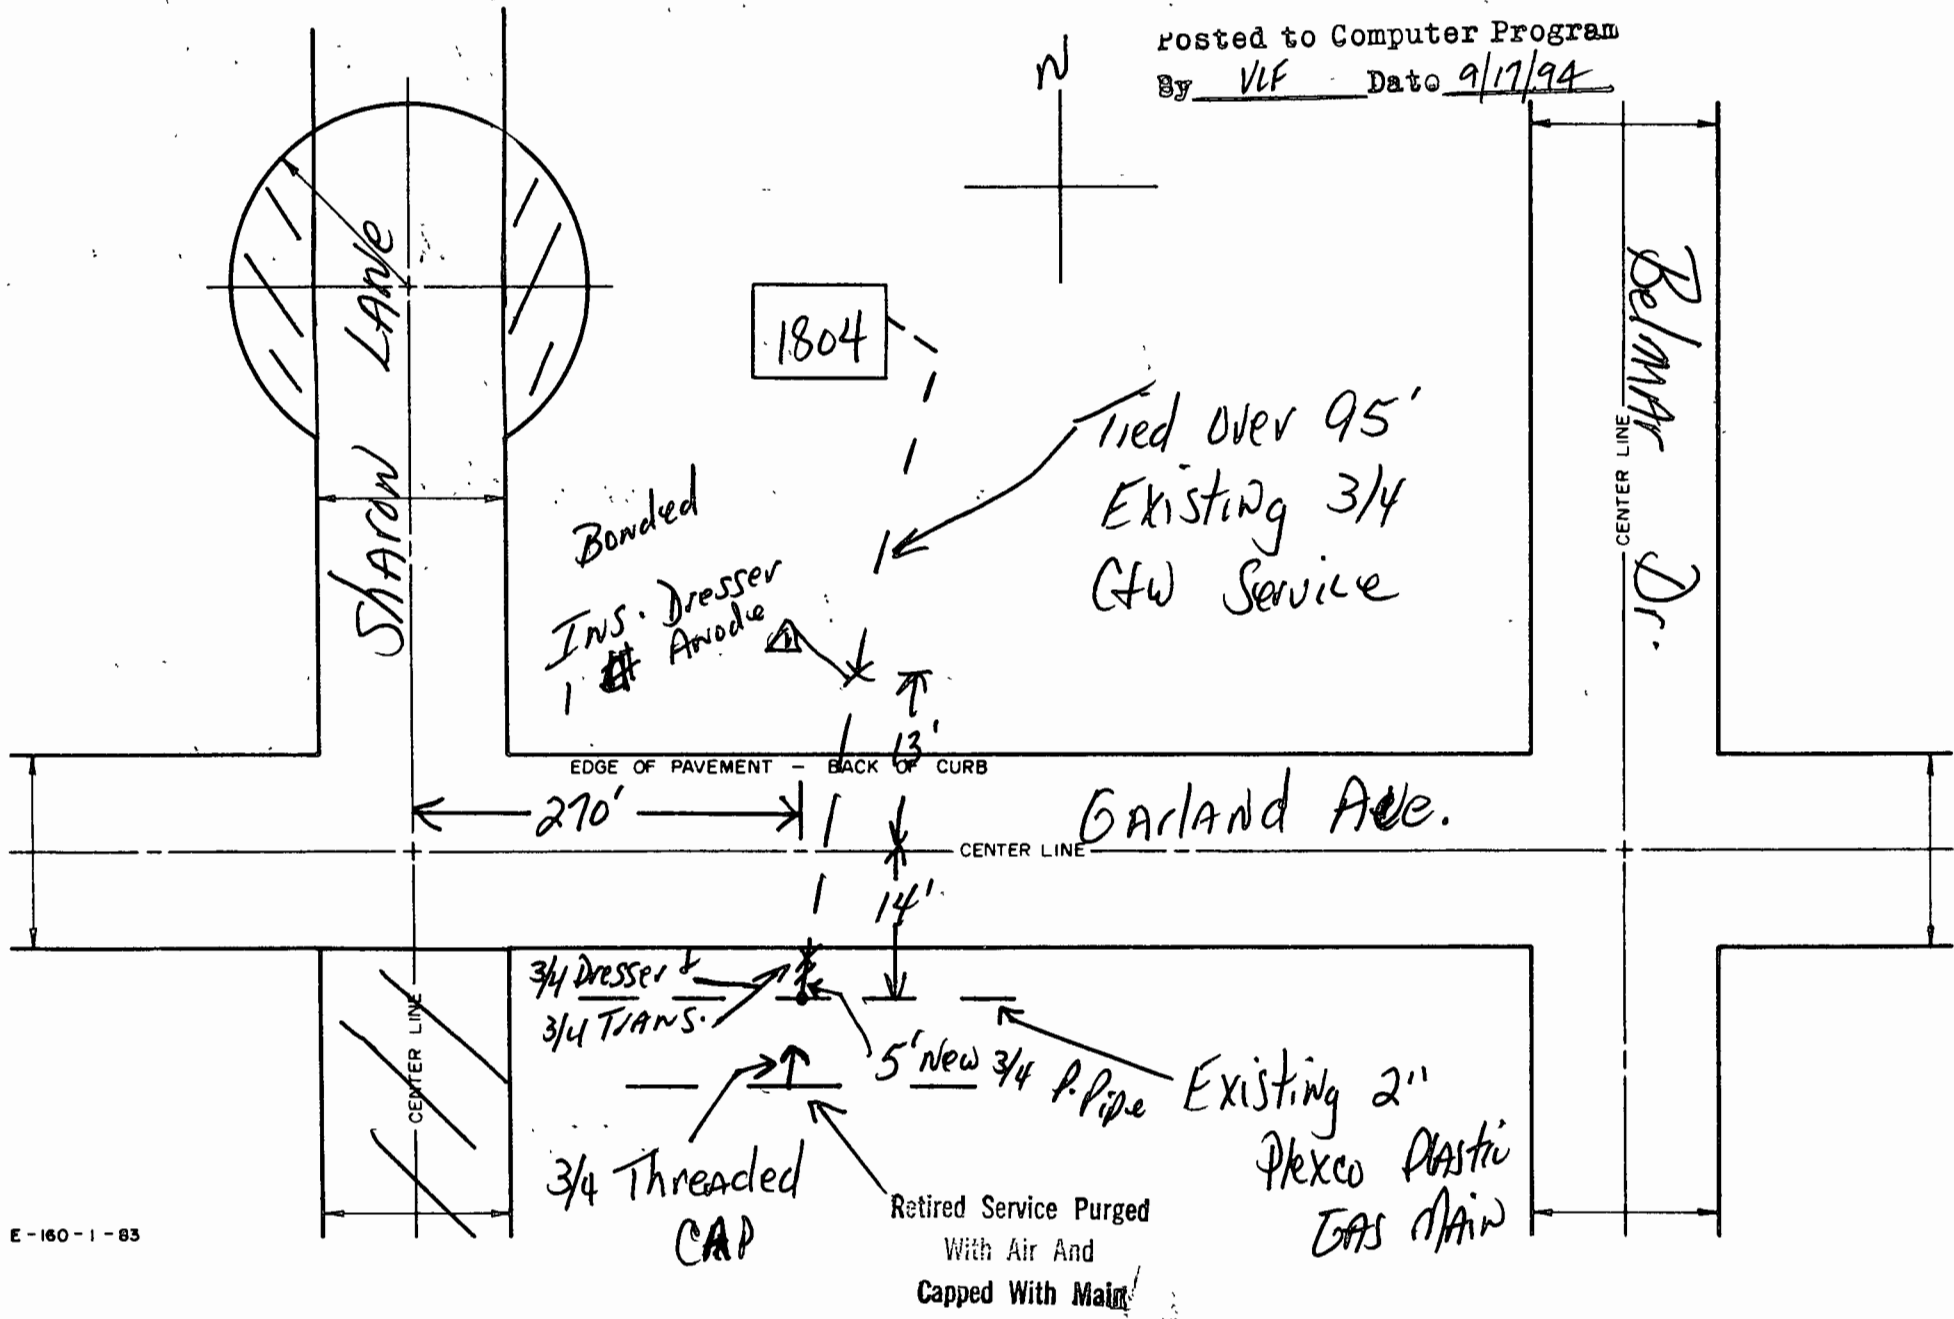 Posted to Computer Program
By VLF Date 9/17/94
N
Sharon Lane
1804
Belmar Dr.
CENTER LINE
Tied over 95'
Existing 3/4
C&W Service
Bonded
Ins. Dresser
1 # Anode
13'
EDGE OF PAVEMENT - BACK OF CURB
270'
Garland Ave.
CENTER LINE
14'
3/4 Dresser &
3/4 Trans.
CENTER LINE
5' New 3/4 P. Pipe
Existing 2"
Plexco Plastic
Gas Main
3/4 Threaded
CAP
Retired Service Purged
With Air And
Capped With Main
E-160-1-83